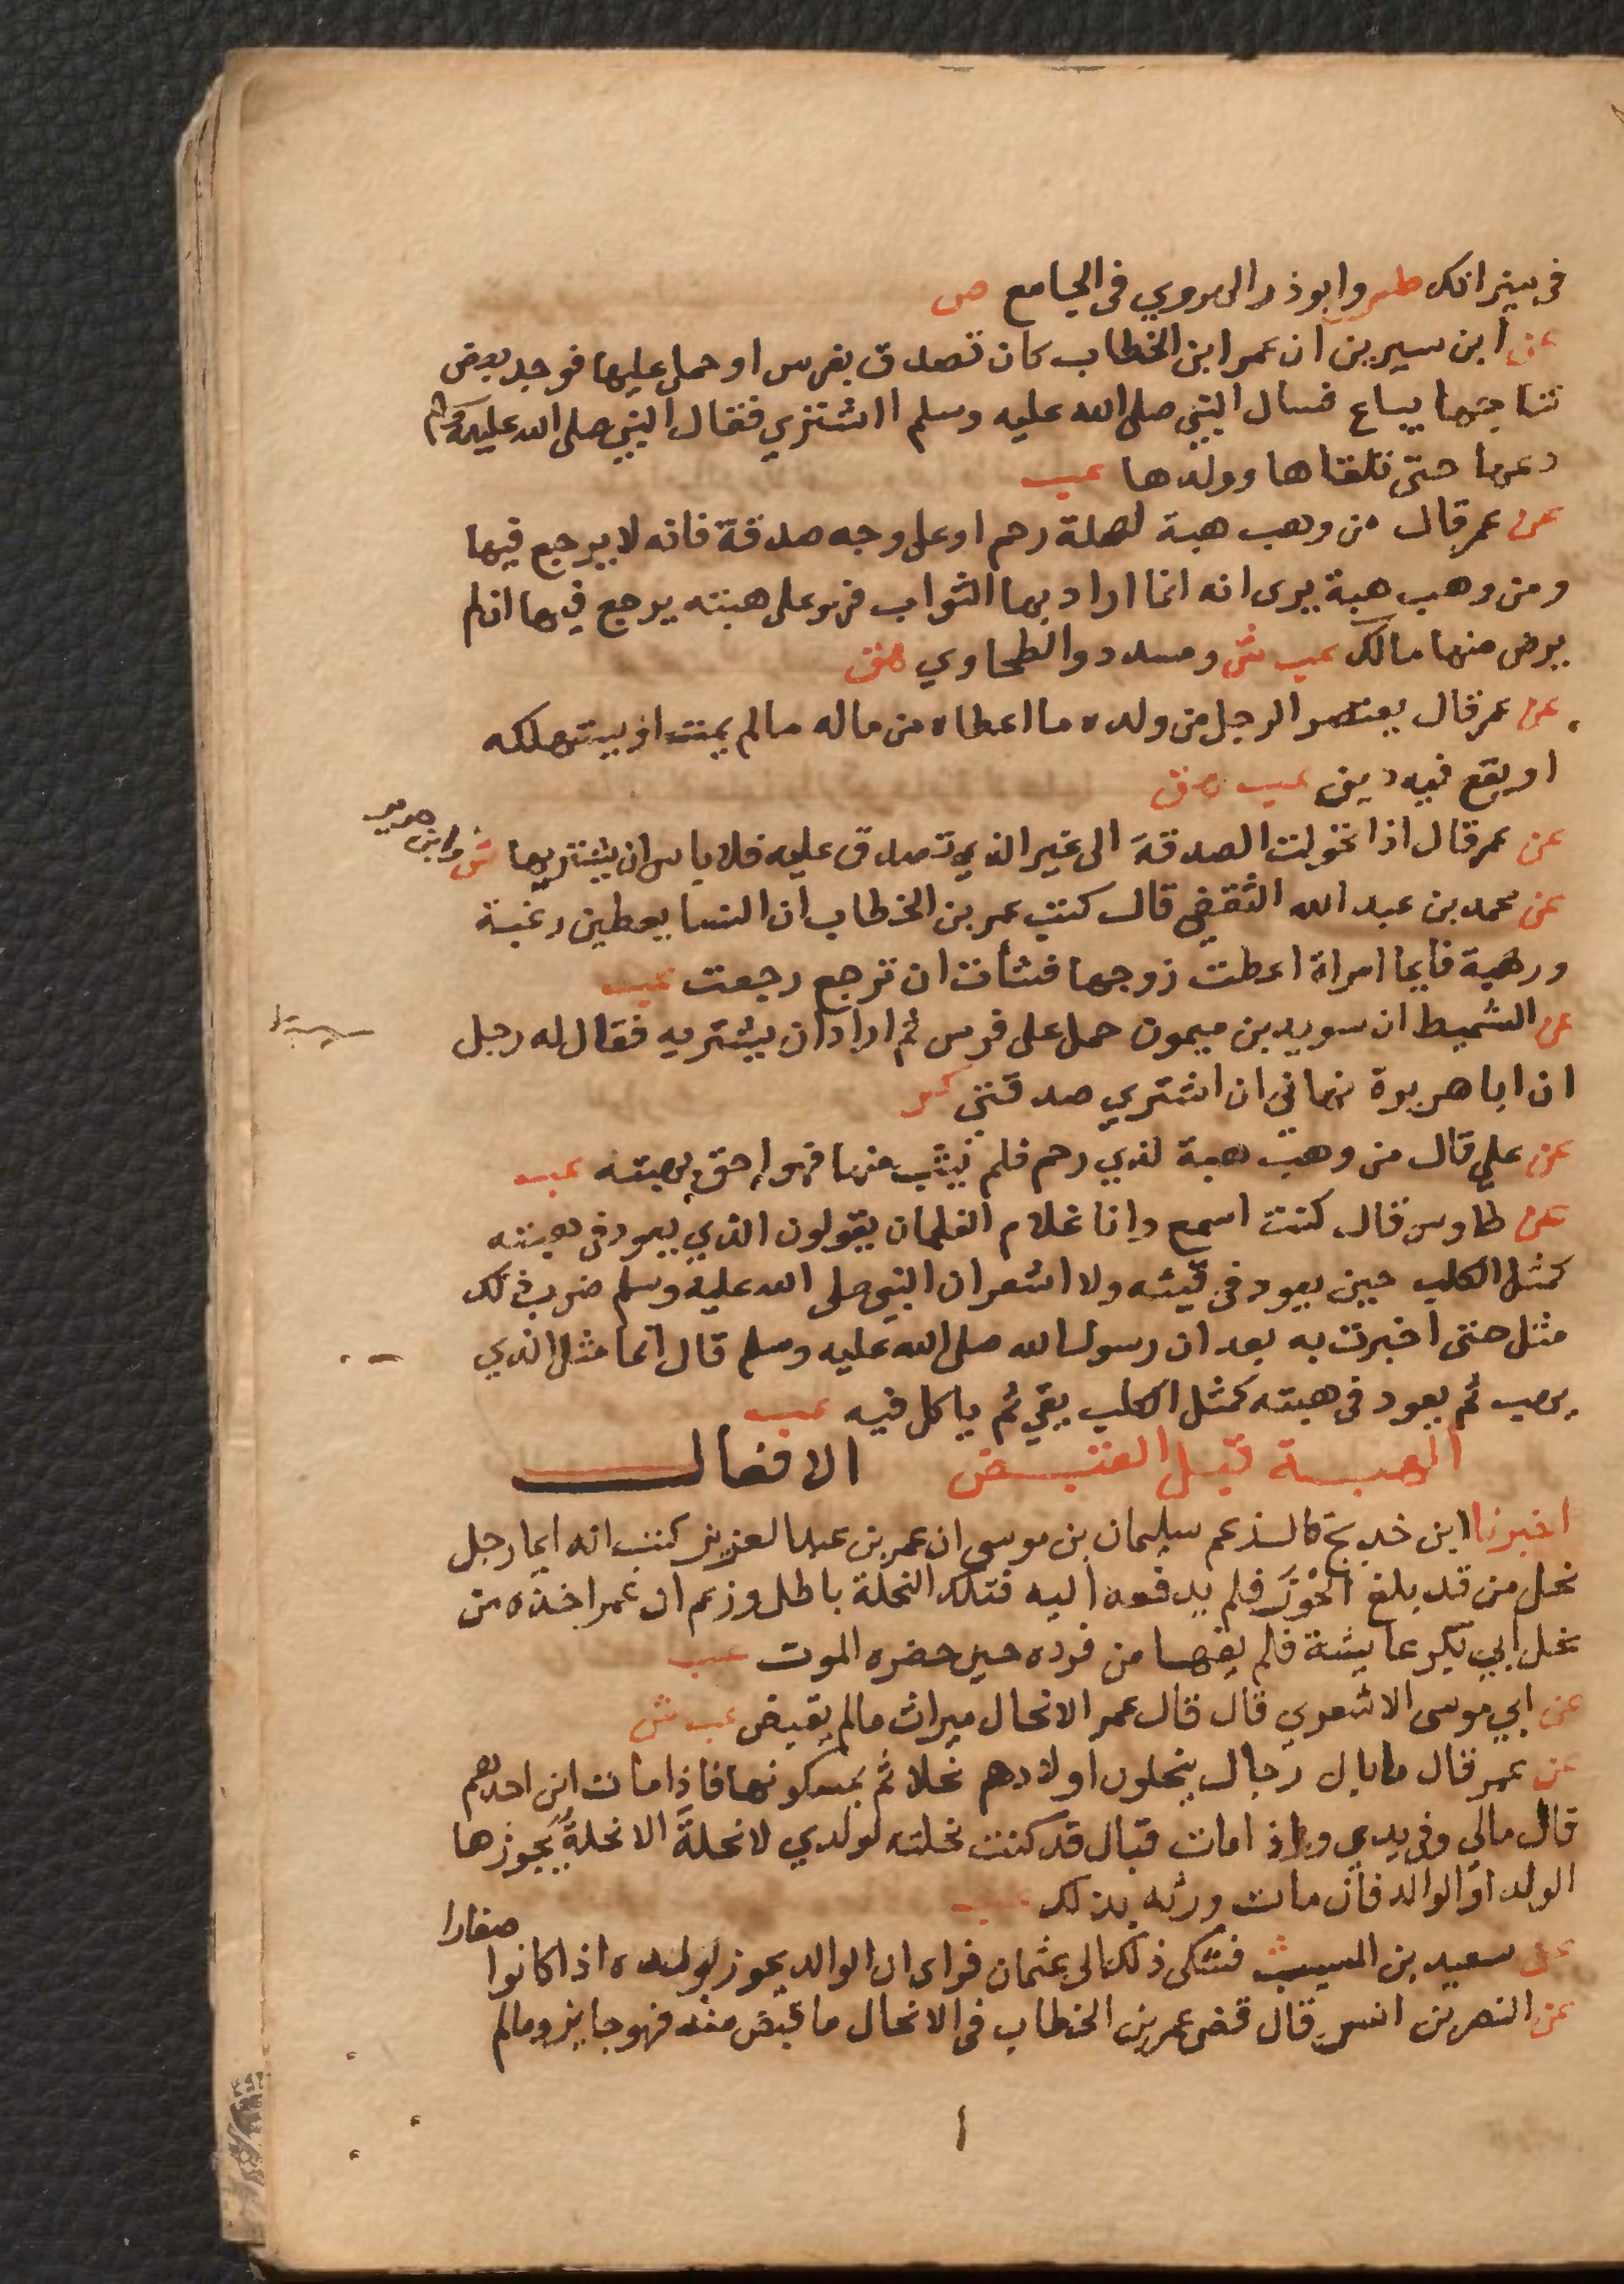 في ميزانك طب وابو ذر الهروي في الجامع ص
عن ابن سيرين ان عمر ابن الخطاب كان تصدق بفرس او حمل عليها فوجد بعض
نتاجها يباع فسال النبي صلى الله عليه وسلم ااشتري فقال النبي صلى الله عليه وسلم
دعها حتى تلقاها وولدها عب
عن عمر قال من وهب هبة لصلة رحم او على وجه صدقة فانه لا يرجع فيها
ومن وهب هبة يرى انه انما اراد بها الثواب فهو على هبته يرجع فيها ان لم
يرض منها مالك عب ش ومسدد والطحاوي هق
عن عمر قال يعتصر الرجل من ولده ما اعطاه من ماله مالم يمت او يستهلكه
او يقع فيه دين عب هق
عن عمر قال اذا تحولت الصدقة الى غير الذي تصدق عليه فلا باس ان يشتريها ش وابن جرير
عن محمد بن عبد الله الثقفي قال كتب عمر بن الخطاب ان النسا يعطين رغبة
ورهبة فايما امراة اعطت زوجها فشات ان ترجع رجعت عب
عن الشميط ان سويد بن ميمون حمل على فرس ثم اراد ان يشتريه فقال له رجل
ان ابا هريرة نهاني ان اشتري صدقتي كر
عن علي قال من وهب هبة لذي رحم فلم يثب منها فهو احق بهبته عب
عن طاوس قال كنت اسمع وانا غلام الغلمان يقولون الذي يعود في هبته
كمثل الكلب حين يعود في قيئه ولا اشعر ان النبي صلى الله عليه وسلم ضرب ذلك
مثل حتى اخبرت به بعد ان رسول الله صلى الله عليه وسلم قال انما مثل الذي
يهب ثم يعود في هبته كمثل الكلب يقي ثم ياكل قيه عب
الهبة قبل القبض الافعال
اخبرنا ابن خديج قال زعم سليمان بن موسى ان عمر بن عبد العزيز كتب انه ايما رجل
نحل من قد بلغ الحوز فلم يدفعه اليه فتلك النحلة باطل وزعم ان عمر اخذه من
نحل ابي بكر عايشة فلم يفها من فرده حين حضره الموت عب
عن ابي موسى الاشعري قال قال عمر الانحال ميراث مالم يقبض عب ش
عن عمر قال ما بال رجال ينحلون اولادهم نحلا ثم يمسكونها فاذا مات ابن احدهم
قال مالي وفي يدي واذا مات قال قد كنت نحلته لولدي لا نحلة الا نحلة يحوزها
الولد او الوالد فان مات ورثه بذلك عب
عن سعيد بن المسيب فشكى ذلك الى عثمان فراى ان الوالد يحوز لولده اذا كانوا صغارا
عن النضر بن انس قال قضى عمر بن الخطاب في الانحال ما قبض منه فهو جايز ومالم